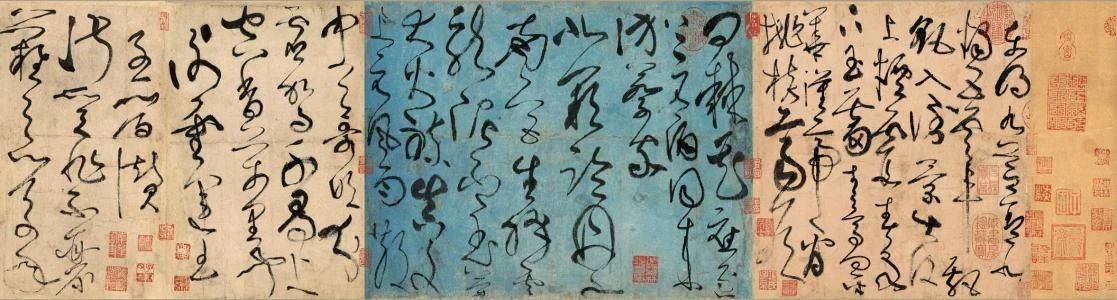 東明九芝蓋北
燭五雲車飄
飖入倒景出没
上煙霞春泉
下玉霤青鳥向金
華漢帝看
桃核齊侯
問棘花應逐
上元酒同來
訪蔡家
北闕臨丹水
南宮生絳雲
龍泥印玉簡
大火練真文
上元風雨散
中天哥吹分
虛駕千尋上
空香萬里聞
謝靈運王
子晉讚
淑質非不麗
難以之百年